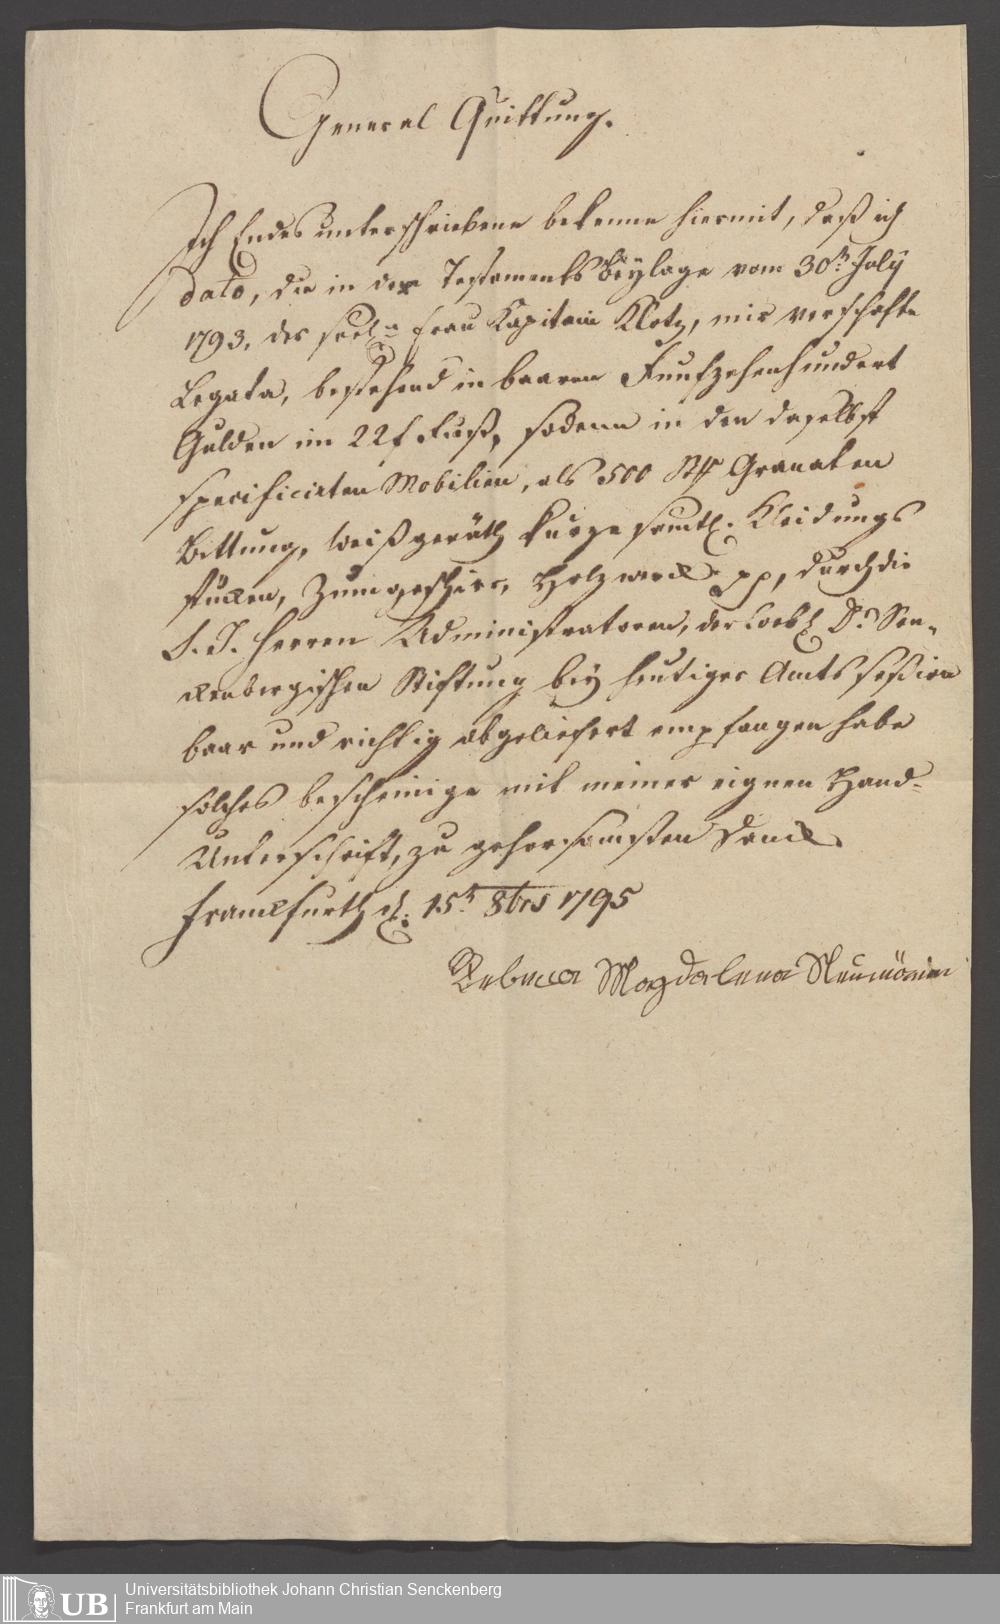 General Quittung.
Ich Endes unterschriebene bekenne hiermit, daß ich
dato, die in der Testaments Beylage vom 30t July
1793. der seel. Frau Kapitain Klotz, mir verschafte
Legata, bestehend in baaren Funfzehenhundert
Gulden im 22f Fuß, sodenn in den daselbst
specificirten Mobilien, als 500 Stk Granaten
Bettung, Weißgeräth kurze samtl. Kleidungs
stücken, Zinngeschirr, Holzwerck pp, durch die
S. T. Herren Administratoren, der Loebl Dr Sen-
ckenbergischen Stiftung bey heutiger Amts session
baar und richtig abgeliefert empfangen habe
solches bescheinige mit meiner eignen Hand-
Unterschrift, zu gehorsamsten Danck.
Franckfurth d. 15t 8brs 1795
Rebecca Magdalena
UB
Universitätsbibliothek Johann Christian Senckenberg
Frankfurt am Main